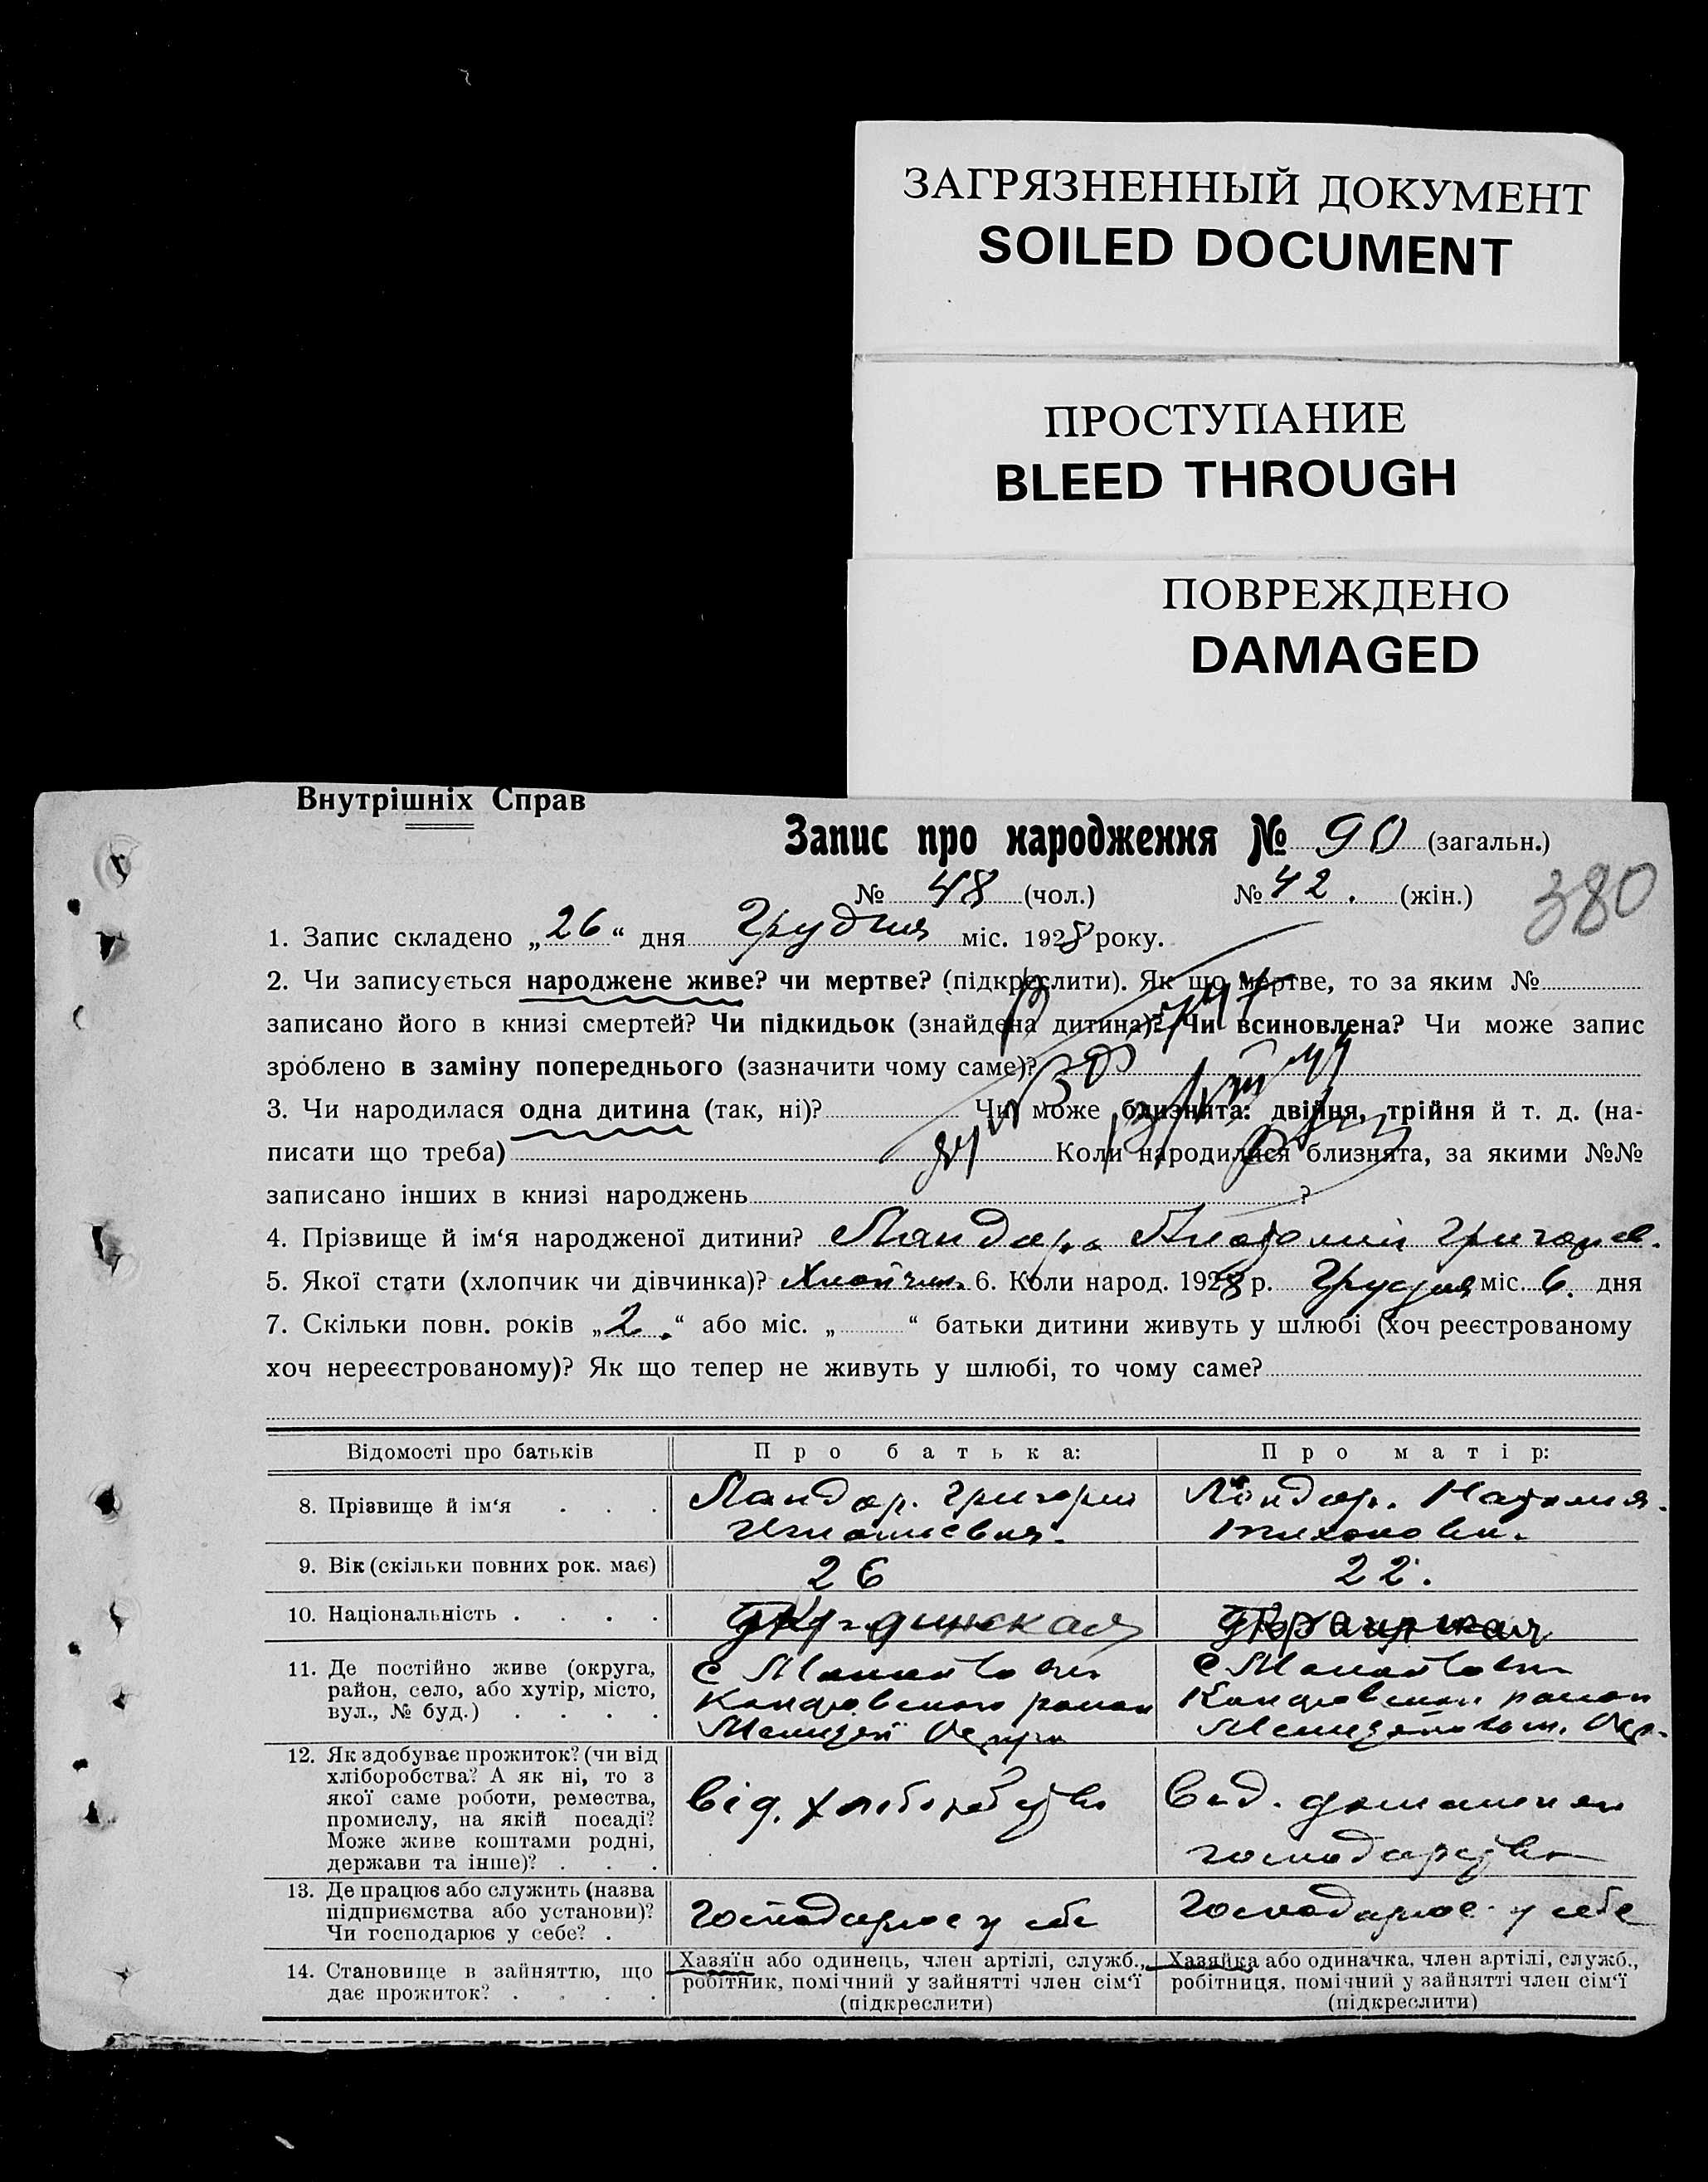 ЗАГРЯЗНЕННЫЙ ДОКУМЕНТ
SOILED DOCUMENT
ПРОСТУПАНИЕ
BLEED THROUGH
ПОВРЕЖДЕНО
DAMAGED
Внутрішніх Справ
Запис про народження № 90 (загальн.)
№ 48 (чол.) № 42. (жін.)
380
1. Запис складено „26“ дня Грудня міс. 1928 року.
2. Чи записується народжене живе? чи мертве? (підкреслити). Як що мертве, то за яким №
записано його в книзі смертей? Чи підкидьок (знайдена дитина)? Чи всиновлена? Чи може запис
зроблено в заміну попереднього (зазначити чому саме)?
3. Чи народилася одна дитина (так, ні)? Чи може близнята: двійня, трійня й т. д. (на-
писати що треба) Коли народилися близнята, за якими №№
записано інших в книзі народжень ?
4. Прізвище й ім‘я народженої дитини? Григорев.
5. Якої стати (хлопчик чи дівчинка)? Хлопчик. 6. Коли народ. 1928 р. Грудня міс. 6. дня
7. Скільки повн. років „2.“ або міс. „ “ батьки дитини живуть у шлюбі (хоч реєстрованому
хоч нереєстрованому)? Як що тепер не живуть у шлюбі, то чому саме?
Відомості про батьків Про батька: Про матір:
8. Прізвище й ім‘я . . . Ландар. Григорий Ландар. Наталия.
9. Вік (скільки повних рок. має) 26 22.
10. Національність . . . .
11. Де постійно живе (округа, с с
район, село, або хутір, місто, район район
вул., № буд.) . . . .
12. Як здобуває прожиток? (чи від
хліборобства? А як ні, то з
якої саме роботи, ремества, від. хліборобства Від. домашнян
промислу, на якій посаді?
Може живе коштами родні, господарства
держави та інше)? . . .
13. Де працює або служить (назва
підприємства або установи)? Господарює у себе Господарює у себе
Чи господарює у себе? .
14. Становище в зайняттю, що Хазяїн або одинець, член артілі, служб., Хазяйка або одиначка, член артілі, служб.,
дає прожиток? . . . . робітник, помічний у зайнятті член сім‘ї робітниця, помічний у зайнятті член сім‘ї
(підкреслити) (підкреслити)